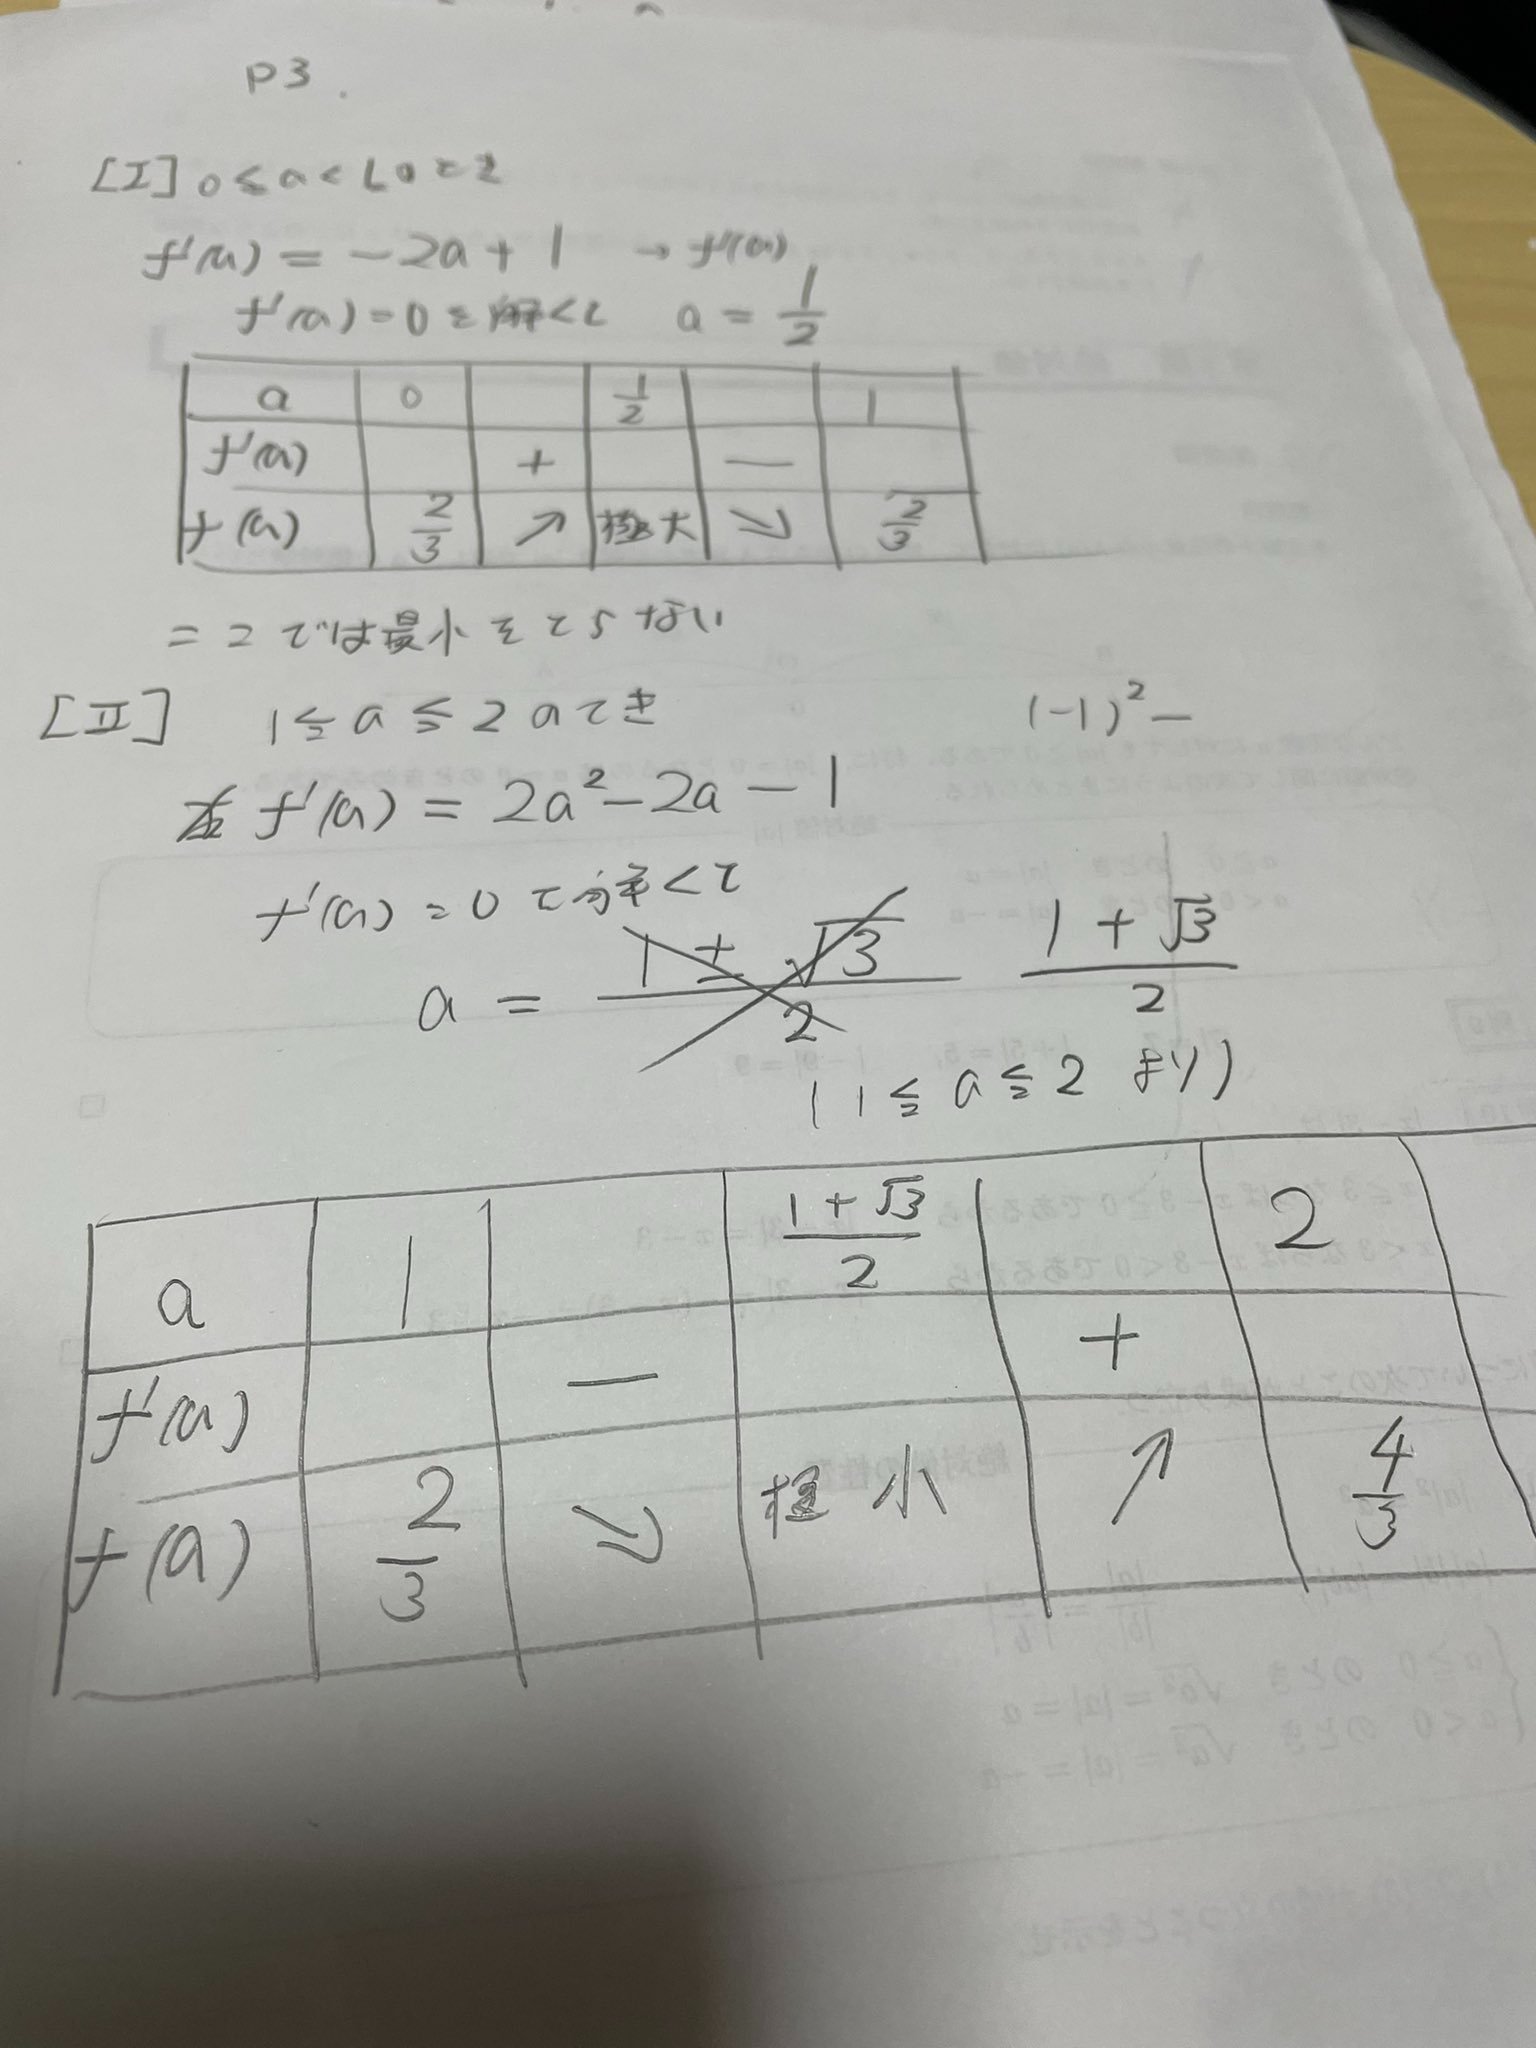 P3.
[I] 0≦a<1のとき
f'(a) = -2a+1 → f'(a)
f'(a)=0を解くと a = 1/2
a 0 1/2 1
f'(a) + −
f(a) 2/3 ↗ 極大 ↘ 2/3
ここでは最小をとらない
[II] 1≦a≦2のとき (-1)²−
f'(a) = 2a²-2a-1
f'(a)=0で解くと
a = 1±√3/2 1+√3/2
(1≦a≦2より)
a 1 1+√3/2 2
f'(a) − +
f(a) 2/3 ↘ 極小 ↗ 4/3